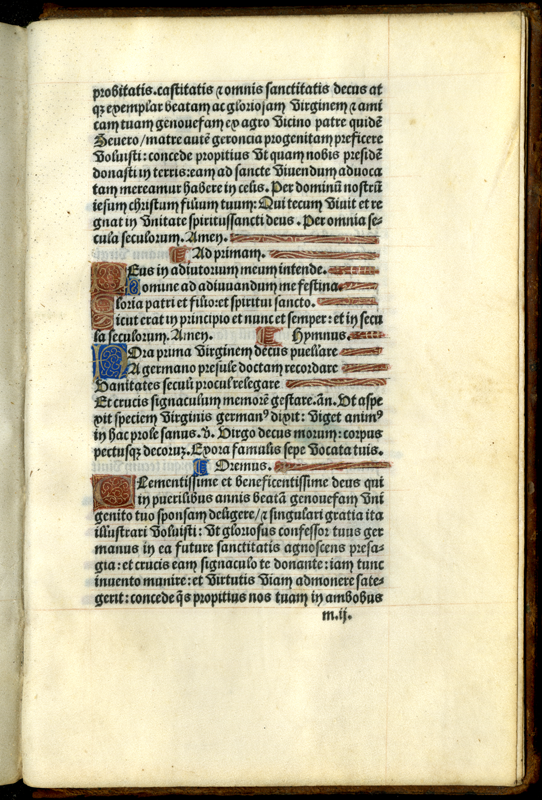 probitatis.castitatis ⁊ omnis sanctitatis decus at
qꝫ exemplar beatam ac gloriosam Virginem ⁊ ami
cam tuam genouefam ex agro Vicino patre quidē
Seuero/matre autē geroncia progenitam preficere
Voluisti: concede propitius Vt quam nobis presidē
donasti in terris: eam ad sancte Viuendum aduoca
tam mereamur habere in celis. Per dominū nostrū
iesum christum filium tuum: Qui tecum Viuit et re
gnat in Vnitate spiritussancti deus . Per omnia se-
cula seculorum. Amen.
Ad primam.
Deus in adiutorium meum intende.
Domine ad adiuuandum me festina.
Gloria patri et filio: et spiritui sancto.
Sicut erat in principio et nunc et semper: et in secu
la seculorum. Amen. Hymnus.
Hora prima Virginem decus puellare
A germano presule doctam recordare
Vanitates seculi procul relegare
Et crucis signaculum memorē gestare. ān. Vt aspe
xit speciem Virginis germanꝰ dixit: Viget animꝰ
in hac prole sanus. ѷ. Virgo decus morum: corpus
pectusqꝫ decorum. Exora famulis sepe Vocata tuis.
Oremus.
Clementissime et beneficentissime deus qui
in puerilibus annis beatā genouefam Vni
genito tuo sponsam deligere/⁊ singulari gratia ita
illustrari Voluisti: Vt gloriosus confessor tuus ger
manus in ea future sanctitatis agnoscens presa-
gia: et crucis eam signaculo te donante: iam tunc
inuento munire: et Virtutis Viam admonere sate-
gerit: concede q̄s propitius nos tuam in ambobus
m.ij.